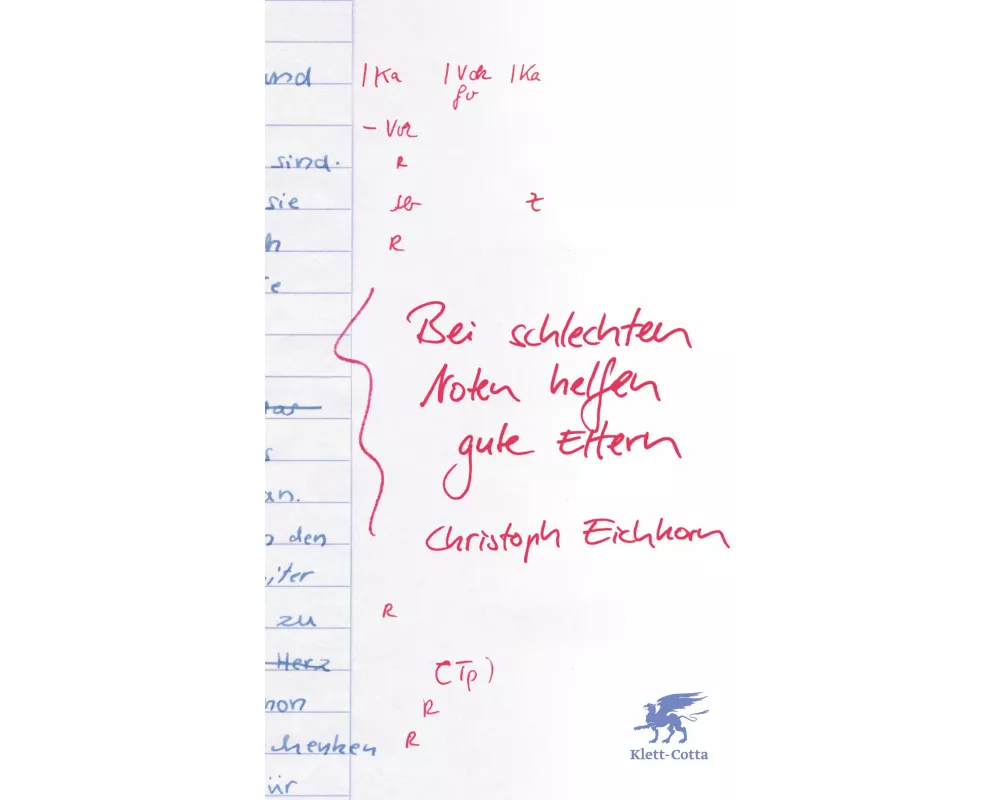 und | Ka | Vok | Ka
gv
- Vok
sind. R
sie sb Z
h R
e
Bei schlechten
Noten helfen
gute Eltern
an.
Christoph Eichhorn
den
iter
zu R
Herz (Tp)
hon R
chenken R
ür
Klett-Cotta